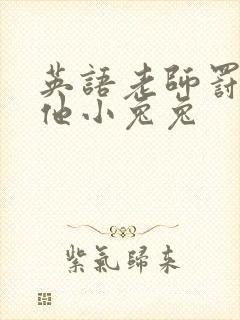 英語老師罰
他小兔兔
紫氣歸來